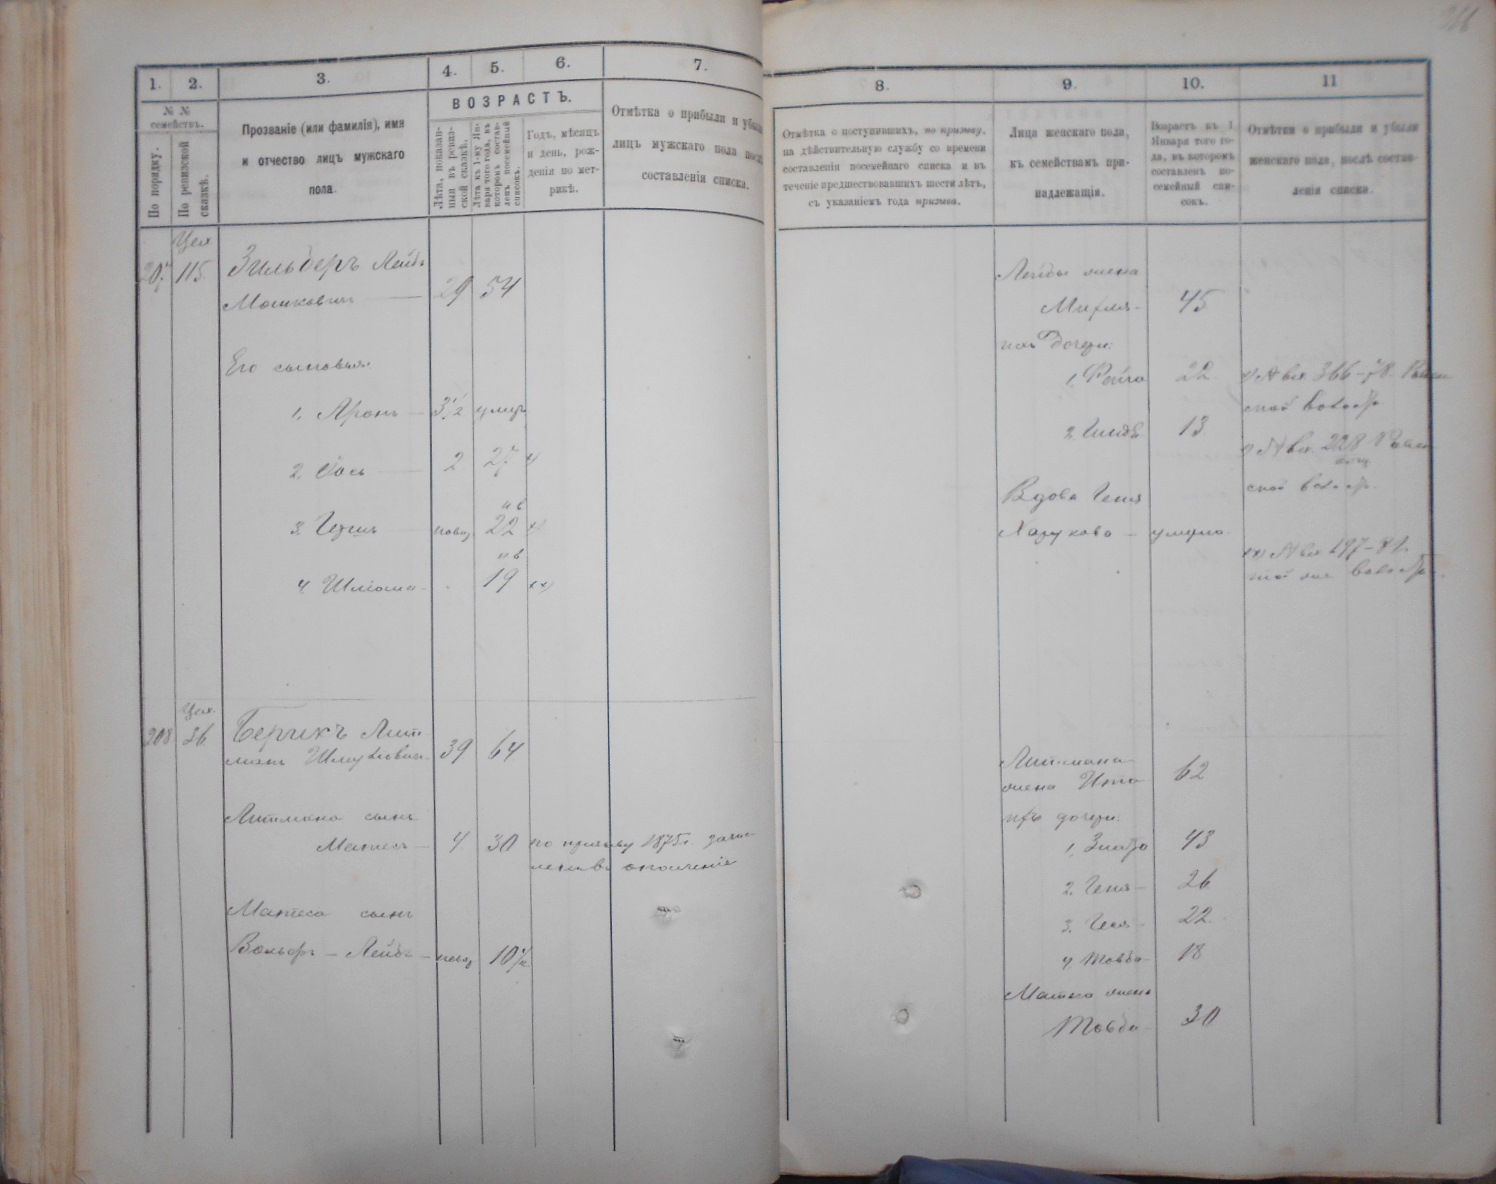 1.
2.
3.
4.
5.
6.
7.
№ №
семействъ.
По порядку.
По ревизской
сказкѣ.
Прозваніе (или фамилія), имя
и отчество лицъ мужскаго
пола.
ВОЗРАСТЪ.
Лѣта, показан-
ныя въ ревиз-
ской сказкѣ.
Лѣта къ 1-му Ян-
варя того года, въ
которомъ состав-
ленъ посемейный
списокъ.
Годъ, мѣсяцъ
и день, рож-
денія по мет-
рикѣ.
Отмѣтка о прибыли и убыли
лицъ мужского пола послѣ
составленія списка.
207
115
Зильберъ Лейба
Мошковичъ
29
54
Его сыновья:
1. Аронъ
3½
умеръ
2. Іось
2
27
3. Гершъ
22
4. Шліома
19
208
36
Берикъ Лит
манъ Шмулевичъ
39
64
Литмана сынъ
Матесъ
4
30
по призыву 1875 г. зачис
ленъ въ ополченіе
Матеса сынъ
Вольфъ - Лейба
10½
8.
9.
10.
11
Отмѣтка о поступившихъ, по призыву,
на дѣйствительную службу со времени
составленія посемейнаго списка и въ
теченіе предшествовавшихъ шести лѣтъ,
съ указаніемъ года призыва.
Лица женскаго пола,
къ семействамъ при-
надлежащія.
Возрастъ къ 1
Января того го-
да, въ которомъ
составленъ по-
семейный спи-
сокъ.
Отмѣтки о прибыли и убыли
женскаго пола, послѣ состав-
ленія списка.
Лейбы жена
45
ихъ дочери:
1. Фейга
22
366-78
2.
13
228
Вдова Геня
умерла
197-81
Литмана
жена Ита
62
ихъ дочери:
1. Злата
43
2. Геня
26
3.
22
4. Товба
18
жена
Товба
30